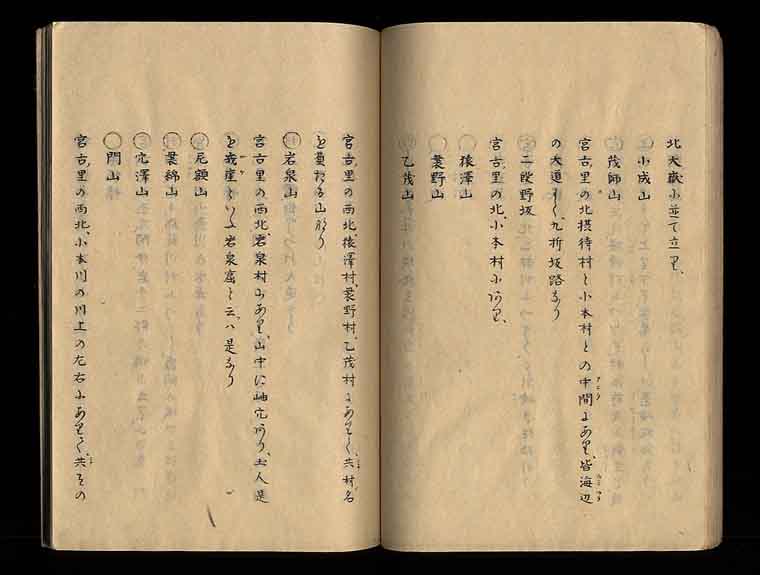 北大嶽に並て立り、
◯小成山
◯茂師山
宮古里の北摂待村と小本村との中間にあり、皆海辺
の大道にて、九折坂路なり
◯二段野坂
宮古里の北、小本村にあり、
◯猿澤山
◯蓑野山
◯乙茂山
宮古里の西北、猿澤村、蓑野村、乙茂村にありて、共村名
を負たる山なり
◯岩泉山
宮古里の西北、岩泉村にあり、山中に岫穴あり、土人是
を窟といふ岩泉窟と云ハ是なり
◯尼額山
◯綿山
◯穴澤山
◯門山
宮古里の西北、小本川の川上の左右にありて、共その